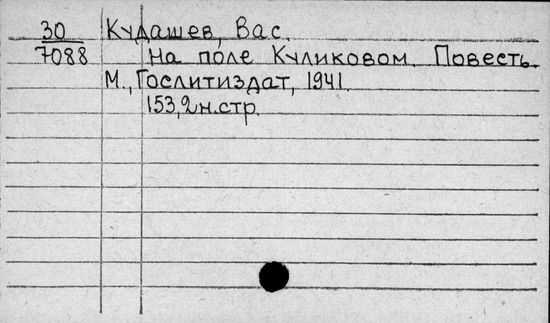 30 Кудашев, Вас.
7088 На поле Куликовом. Повесть.
М., Гослитиздат, 1941.
153, 2 н. стр.